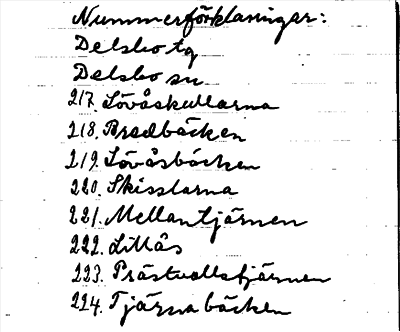 Nummerförklaringar:
Delsbo tg
Delsbo sn
217. Lövåskullarna
218. Bredbäcken
219. Lövåsbäcken
220. Skisslarna
221. Mellantjärnen
222. Lillås
223. Prästvallstjärnen
224. Tjärnabäcken